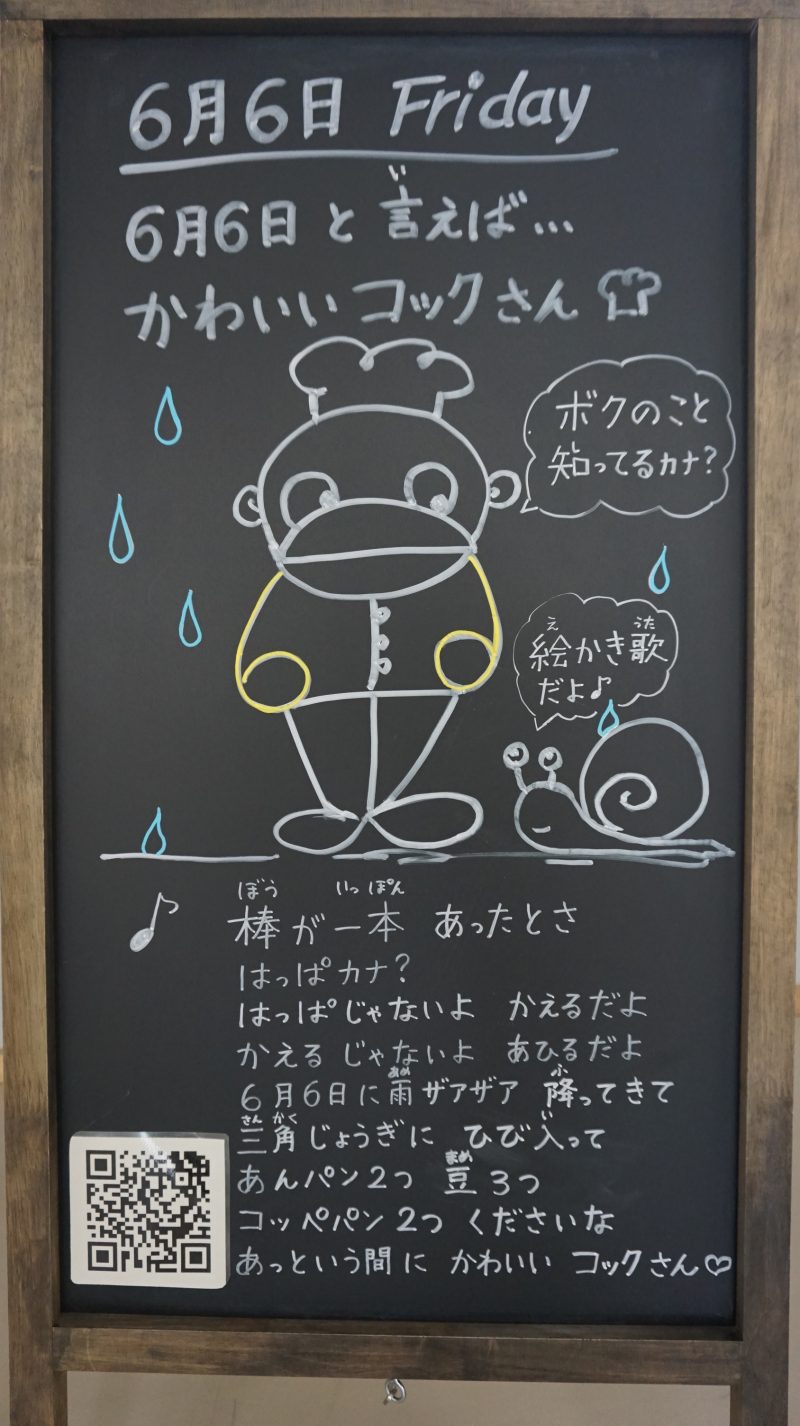 6月6日 Friday
6月6日と言えば…
い
かわいいコックさん
ボクのこと
し
知ってるカナ?
え うた
絵かき歌
だよ♪
ぼう いっぽん
♪ 棒が一本 あったとさ
はっぱカナ?
はっぱじゃないよ かえるだよ
かえるじゃないよ あひるだよ
あめ ふ
6月6日に雨ザアザア 降ってきて
さん かく い
三角じょうぎに ひび入って
まめ
あんパン2つ 豆3つ
コッペパン2つ くださいな
あっという間に かわいい コックさん♡